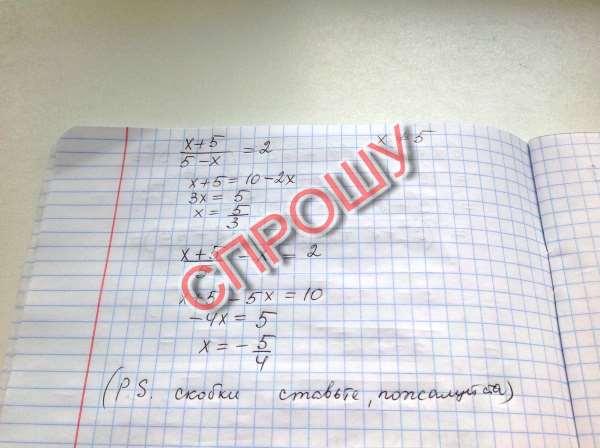 x+5/5-x = 2
x ≠ 5
x+5 = 10-2x
3x = 5
x = 5/3
x+5/5 - x = 2
x+5-5x = 10
-4x = 5
x = -5/4
(P.S. скобки ставьте, пожалуйста)
СПРОШУ